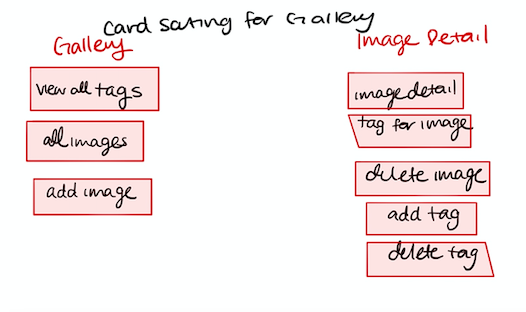 Card sorting for Gallery
Gallery
view all tags
all images
add image
Image Detail
image detail
tag for image
delete image
add tag
delete tag